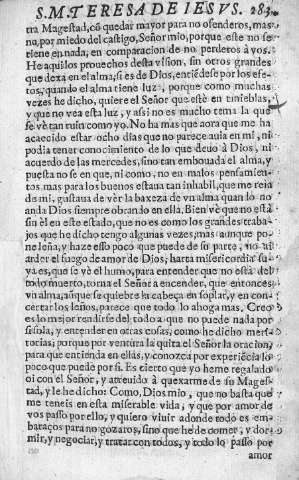 S. M. TERESA DE IESVS. 283
tra Magestad, cō quedar mayor para no ofenderos, mas
no, por miedo del castigo, Señor mio, porque este no se
tiene en nada, en comparacion de no perderos à vos.
He aqui los prouechos desta vision, sin otros grandes
que dexa en el alma, si es de Dios, entiēdese por los efe-
tos, quando el alma tiene luz, porque como muchas
vezes he dicho, quiere el Señor que estè en tinieblas,
y que no vea esta luz, y assi no es mucho tema la que
se vè tan ruin como yo. No ha mas que aora que me ha
acaecido estar ocho dias que no parece auia en mi, ni
podia tener conocimiento de lo que deuo à Dios, ni
acuerdo de las mercedes, sino tan embouada el alma, y
puesta no se en que, ni como, no en malos pensamien-
tos, mas para los buenos estaua tan inhabil, que me reia
de mi, gustaua de vèr la baxeza de vn alma quan lo no
anda Dios siempre obrando en ella. Bien vè que no està
sin èl en este estado, que no es como los grandes traba-
jos que he dicho tengo algunas vezes, mas aunque po-
ne leña, y haze esso poco que puede de su parte, no ay
arder el fuego de amor de Dios, harta misericordia su-
ya es, que se vè el humo, para entender que no està del
todo muerto, torna el Señor à encender, que entonces
vn alma, aunque se quiebre la cabeça en soplar, y en con-
certar los leños, parece que todo lo ahoga mas. Creo
es lo mejor rendirse del todo à que no puede nada por
si sola, y entender en otras cosas, como he dicho meri-
torias; porque por ventura la quita el Señor la oracion,
para que entienda en ellas, y conozca por experiēcia lo
poco que puede por si. Es cierto que yo heme regalado
oi con el Señor, y atreuido à quexarme de su Mages-
tad, y le he dicho: Como, Dios mio, que no basta que
me teneis en esta miserable vida, y que por amor de
vos passo por ello, y quiero viuir adonde todo es em-
baraços para no gozaros, sino que he de comer, y dor-
mir, y negociar, y tratar con todos, y todo lo passo por
amor